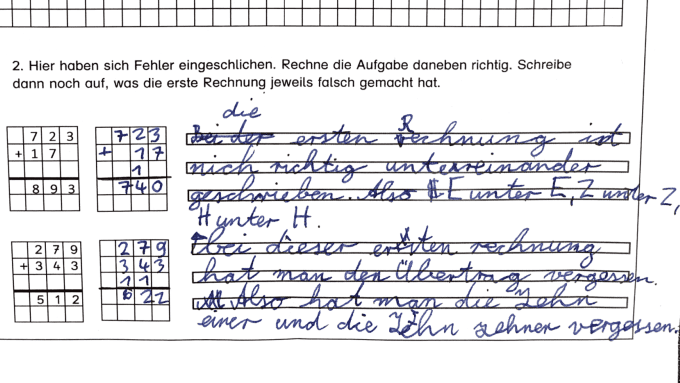 2. Hier haben sich Fehler eingeschlichen. Rechne die Aufgabe daneben richtig. Schreibe
dann noch auf, was die erste Rechnung jeweils falsch gemacht hat.
die
Bei der ersten Rechnung ist
nich richtig untereinander
geschrieben. Also E unter E, Z under Z,
H unter H.
7 2 3
+ 1 7
8 9 3
7 2 3
+ 1 7
1
7 4 0
bei dieser ersten rechnung
hat man den Übertrag vergessen.
Also hat man die Zehn
einer und die Zehn zehner vergessen.
2 7 9
+ 3 4 3
5 1 2
2 7 9
3 4 3
1 1
6 2 2